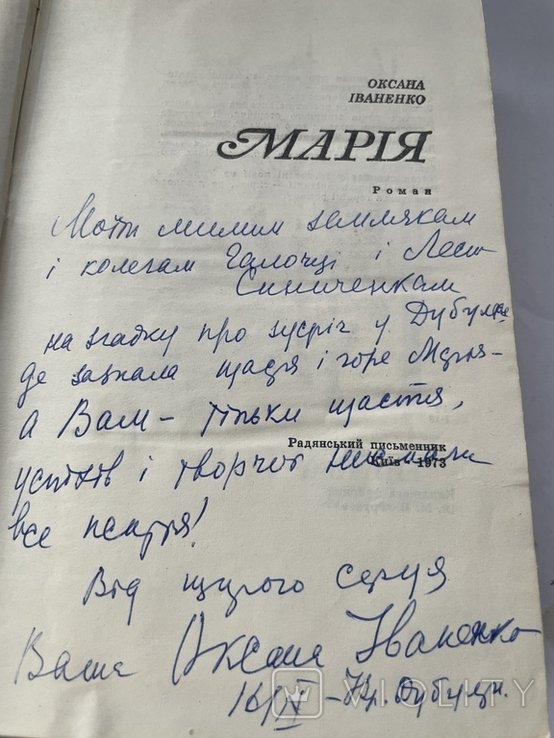 ОКСАНА
ІВАНЕНКО
МАРІЯ
Роман
Моїм милим землякам
і колегам Галочці і Лесю
Синиченкам
на згадку про зустріч у Дубултах,
де зазнала щастя і горе Марія –
а Вам – тільки щастя,
Радянський письменник
Київ – 1973
успіхів і творчої
все
Від щирого серця
Ваша Оксана Іваненко
16/IV –
VIOLITY